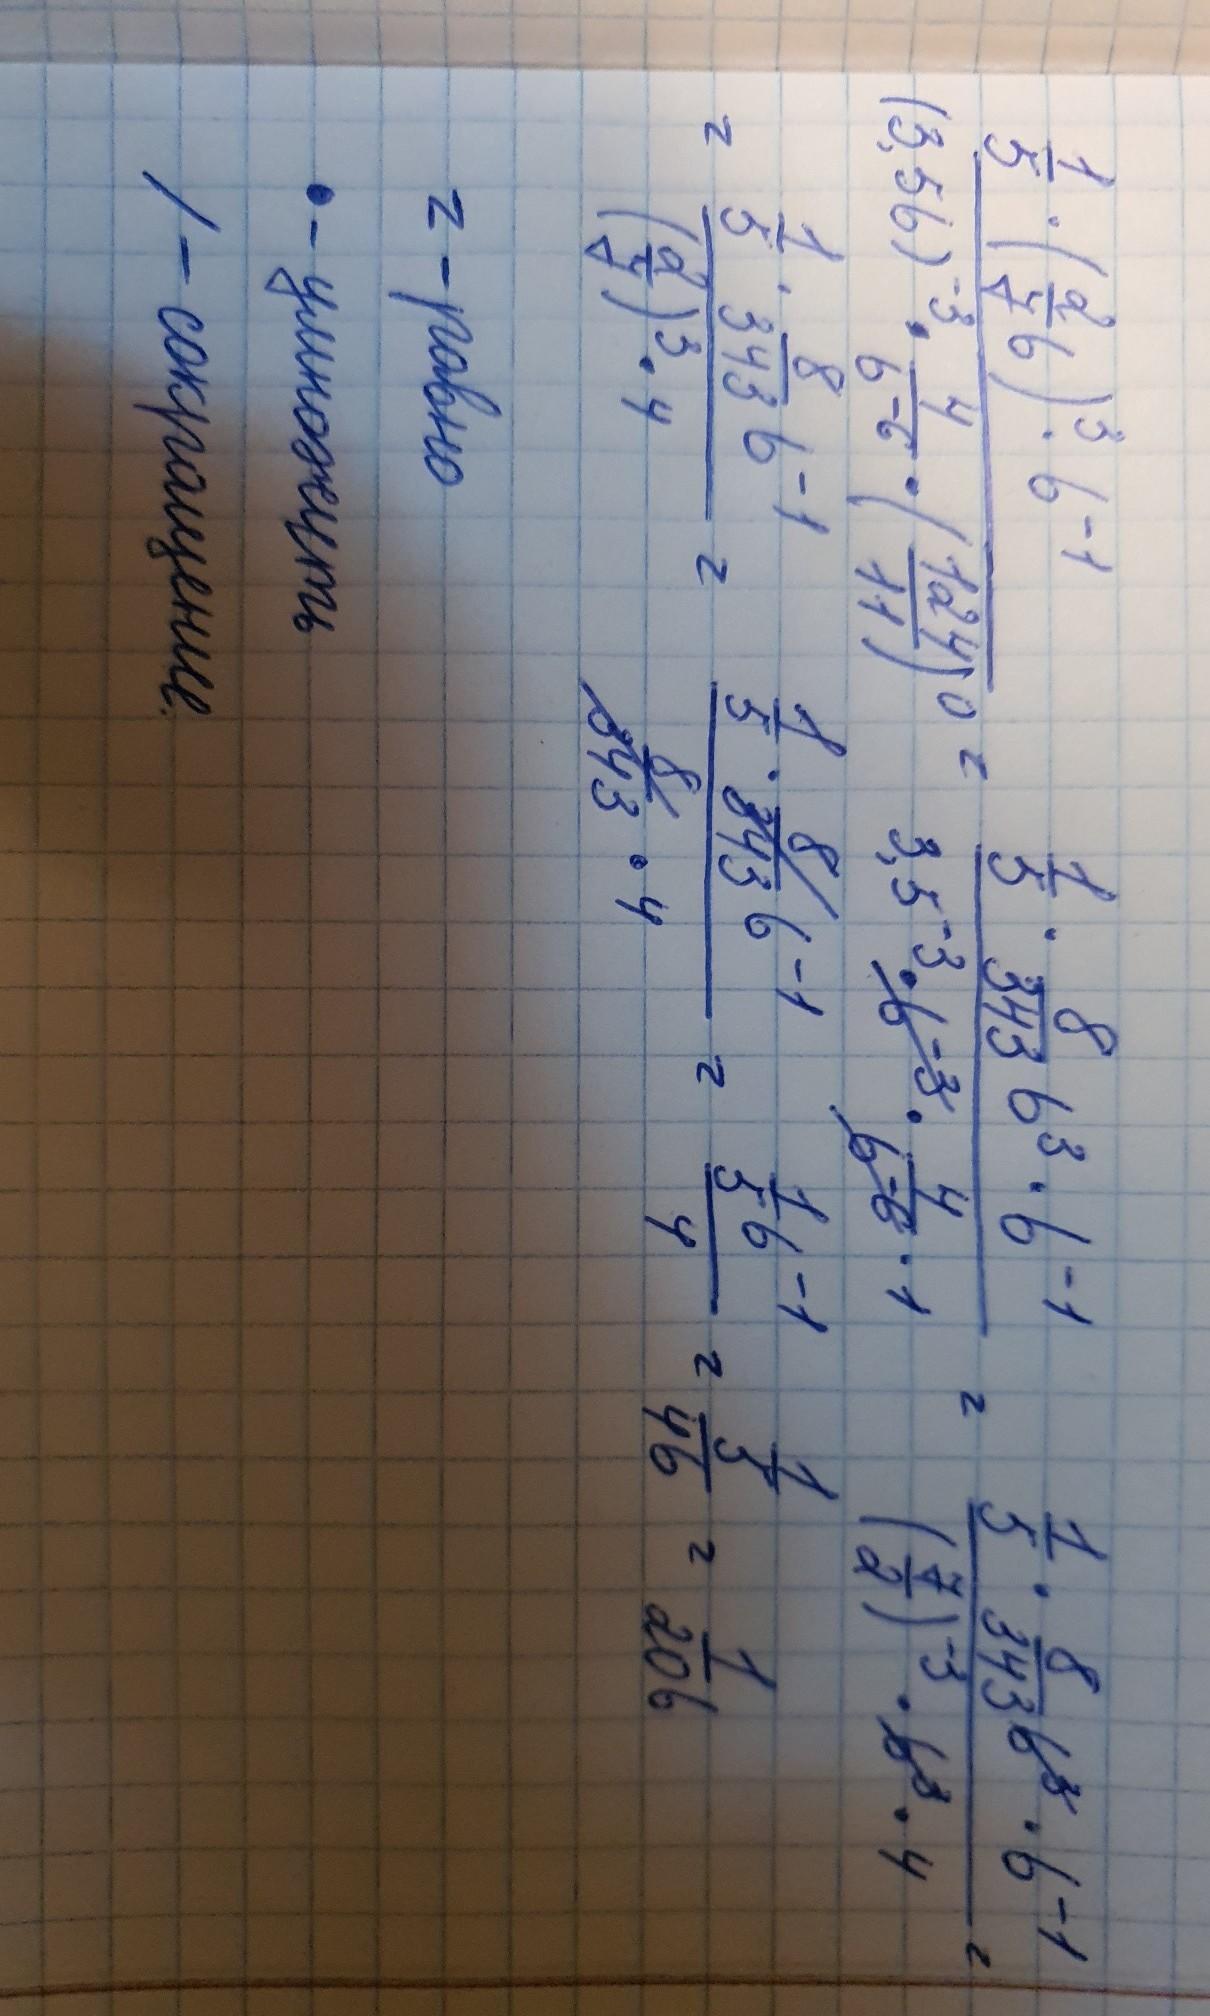 (1/5 · (2/7 b)³ · b⁻¹) / ((3,5b)⁻³ · 4/b⁻⁶ · (124/11)⁰) = (1/5 · 8/343 b³ · b⁻¹) / (3,5⁻³ · b⁻³ · 4/b⁻⁶ · 1) = (1/5 · 8/343 b³ · b⁻¹) / ((7/2)⁻³ · b³ · 4) =
= (1/5 · 8/343 b⁻¹) / ((2/7)³ · 4) = (1/5 · 8/343 b⁻¹) / (8/343 · 4) = (1/5 b⁻¹) / 4 = (1/5) / 4b = 1/20b
= – равно
• – умножить
/ – сокращение.